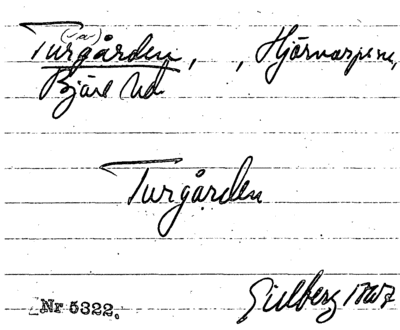 Turgården, , Hjärnarps sn,
(-a-)
Bjäre hd
Turgården
Nr 5322.
Gillberg 1767